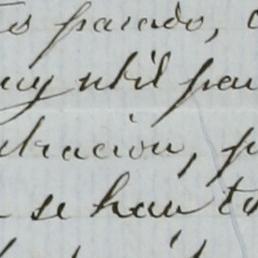 pasado,
muy util par
tracion, p
se han t